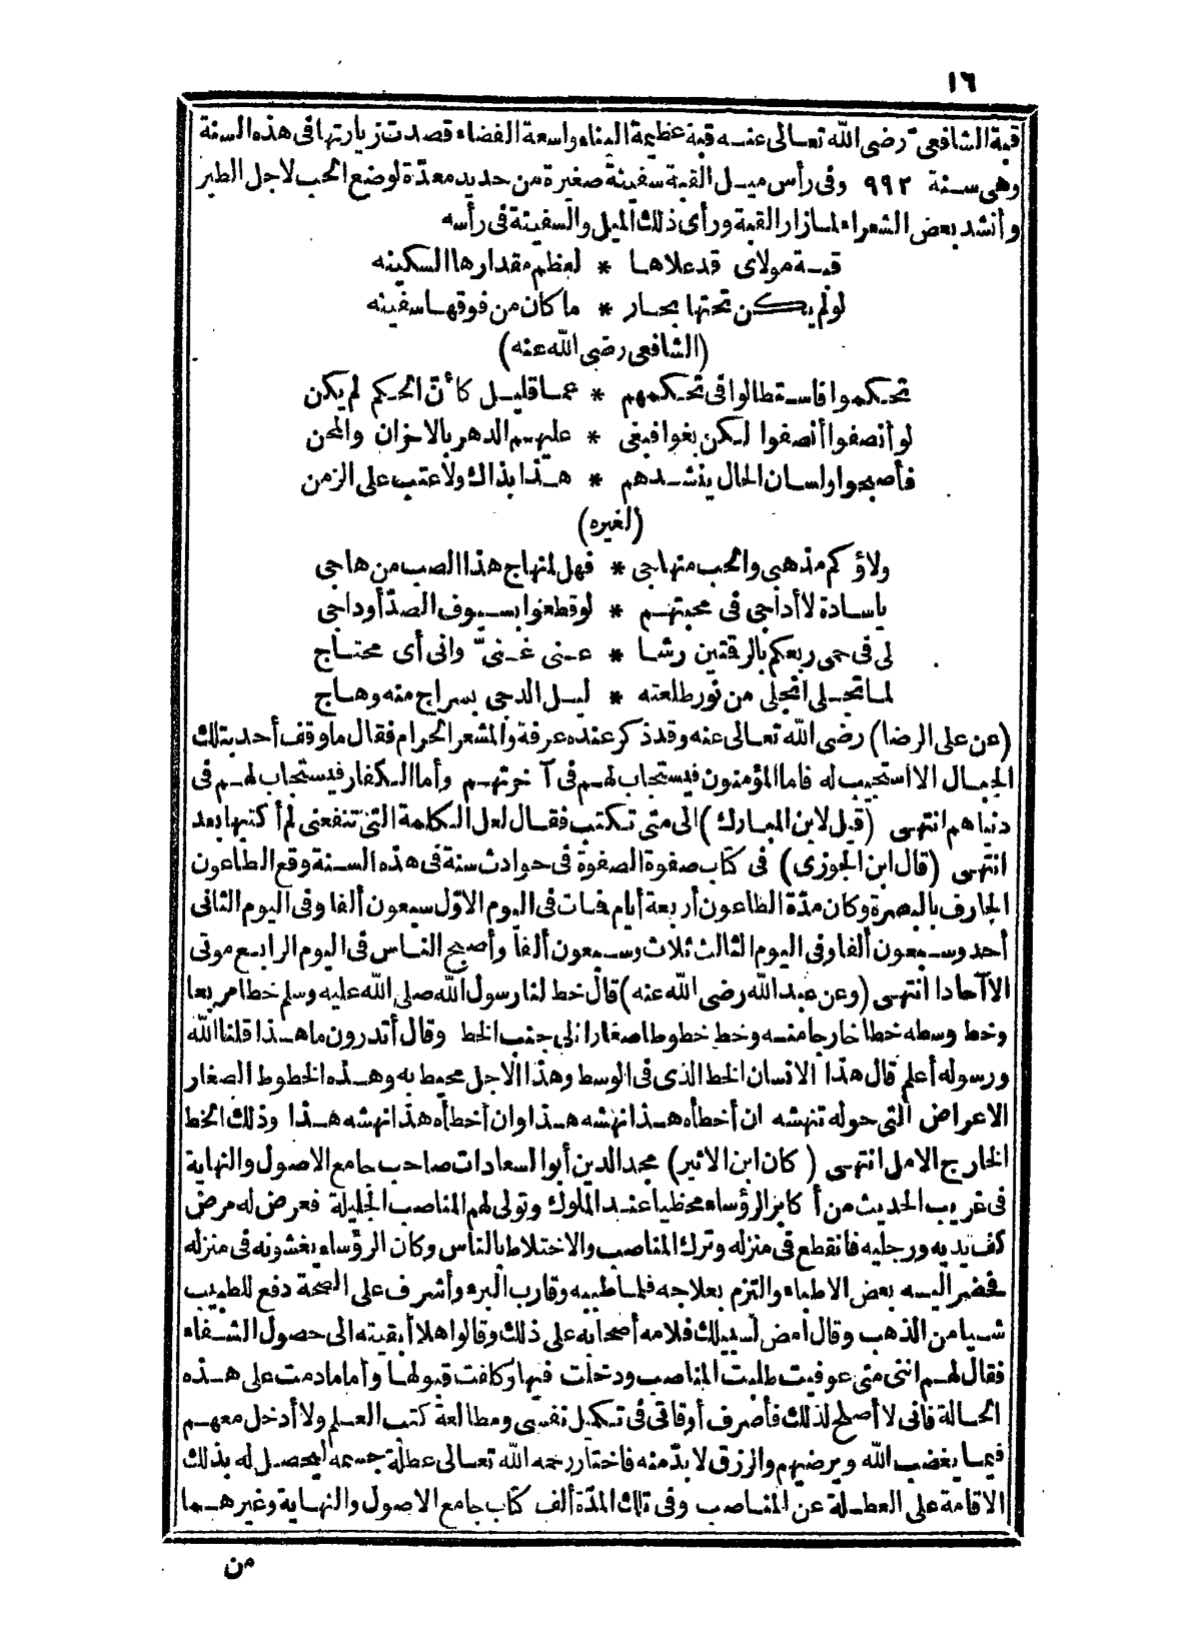 ١٦
قبة الشافعى رضى الله تعالى عنه قبة عظيمة البناء واسعة الفضاء قصدت زيارتها فى هذه السنة
وهى سنة ٩٩٢ وفى رأس ميل القبة سفينة صغيرة من حديد معدّة لوضع الحب لاجل الطير
وأنشد بعض الشعراء لما زار القبة ورأى ذلك الميل والسفينة فى رأسه
قبة مولاى قد علاها * لعظم مقدارها السكينه
لو لم يكن تحتها بحار * ما كان من فوقها سفينه
(الشافعى رضى الله عنه)
تحكموا فاستطالوا فى تحكمهم * عما قليل كأنّ الحكم لم يكن
لو أنصفوا أنصفوا لكن بغوا فبغى * عليهم الدهر بالاحزان والمحن
فأصبحوا ولسان الحال ينشدهم * هذا بذاك ولا عتب على الزمن
(لغيره)
ولاؤكم مذهبى والحب منهاجى * فهل لمنهاج هذا الصب من هاجى
يا سادة لا أداجى فى محبتهم * لو قطعوا بسيوف الصدّ أوداجى
لى فى حمى ربعكم بالرقتين رشا * عنى غنىّ وانى أى محتاج
لما تجلى انجلى من نور طلعته * ليل الدجى بسراج منه وهاج
(عن على الرضا) رضى الله تعالى عنه وقد ذكر عنده عرفة والمشعر الحرام فقال ما وقف أحد بتلك
الجبال الا استجيب له فاما المؤمنون فيستجاب لهم فى آخرتهم وأما الكفار فيستجاب لهم فى
دنياهم انتهى (قيل لابن المبارك) الى متى تكتب فقال لعل الكلمة التى تنفعنى لم أكتبها بعد
انتهى (قال ابن الجوزى) فى كتاب صفوة الصفوة فى حوادث سنة فى هذه السنة وقع الطاعون
الجارف بالبصرة وكان مدّة الطاعون أربعة أيام فمات فى اليوم الاوّل سبعون ألفا وفى اليوم الثانى
أحد وسبعون ألفا وفى اليوم الثالث ثلاث وسبعون ألفا وأصبح الناس فى اليوم الرابع موتى
الا آحادا انتهى (وعن عبد الله رضى الله عنه) قال خط لنا رسول الله صلى الله عليه وسلم خطا مربعا
وخط وسطه خطا خارجا منه وخط خطوطا صغارا الى جنب الخط وقال أتدرون ما هذا قلنا الله
ورسوله أعلم قال هذا الانسان الخط الذى فى الوسط وهذا الاجل محيط به وهذه الخطوط الصغار
الاعراض التى حوله تنهشه ان أخطأه هذا نهشه هذا وان أخطأه هذا نهشه هذا وذلك الخط
الخارج الامل انتهى (كان ابن الاثير) مجد الدين أبو السعادات صاحب جامع الاصول والنهاية
فى غريب الحديث من أكابر الرؤساء محظيا عند الملوك وتولى لهم المناصب الجليلة فعرض له مرض
كف يديه ورجليه فانقطع فى منزله وترك المناصب والاختلاط بالناس وكان الرؤساء يغشونه فى منزله
فحضر اليه بعض الاطباء والتزم بعلاجه فلما طببه وقارب البرء وأشرف على الصحة دفع للطبيب
شيا من الذهب وقال امض لسبيلك فلامه أصحابه على ذلك وقالوا هلا أبقيته الى حصول الشفاء
فقال لهم اننى متى عوفيت طلبت المناصب ودخلت فيها وكلفت قبولها وأما مادمت على هذه
الحالة فانى لا أصلح لذلك فأصرف أوقاتى فى تكميل نفسى ومطالعة كتب العلم ولا أدخل معهم
فيما يغضب الله ويرضيهم والرزق لا بدّ منه فاختار رحمه الله تعالى عطلة جسمه ليحصل له بذلك
الاقامة على العطلة عن المناصب وفى تلك المدّة ألف كتاب جامع الاصول والنهاية وغيرهما
من